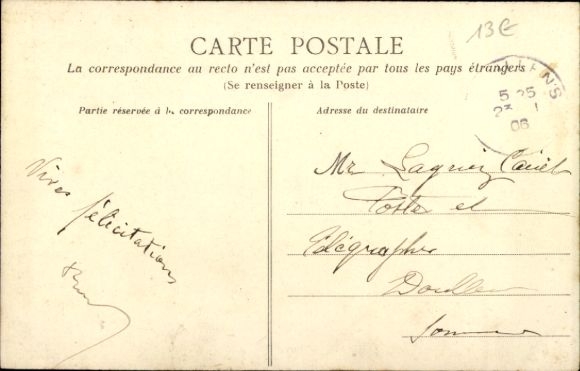 13€
CARTE POSTALE
La correspondance au recto n'est pas acceptée par tous les pays étrangers
(Se renseigner à la Poste)
Partie réservée à la correspondance
Adresse du destinataire
5 25
2
06
Vives
félicitations
Mr
Poste et
Télégraphe
Doullens
Somme